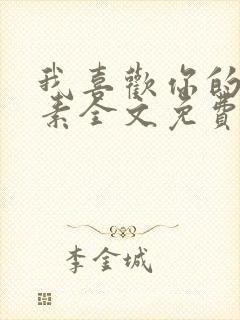 我喜歡你的
素全文免費
李金城